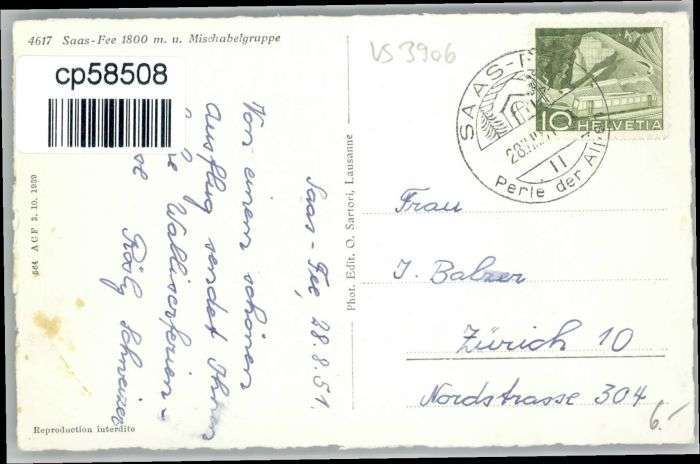 4617 Saas-Fee 1800 m. u. Mischabelgruppe
cp58508
VS 3906
SAAS-F
28.VIII.51
11
Perle der Alpen
10 HELVETIA
Saas-Fee, 28.8.51.
Von einem schönen
Ausflug sendet Ihnen
Walliserferien-
Rösly Schweizer
Phot. Edit. O. Sartori, Lausanne
564 ACF 3. 10. 1950
Reproduction interdite
Frau
J. Balzer
Zürich 10
Nordstrasse 304
6.-